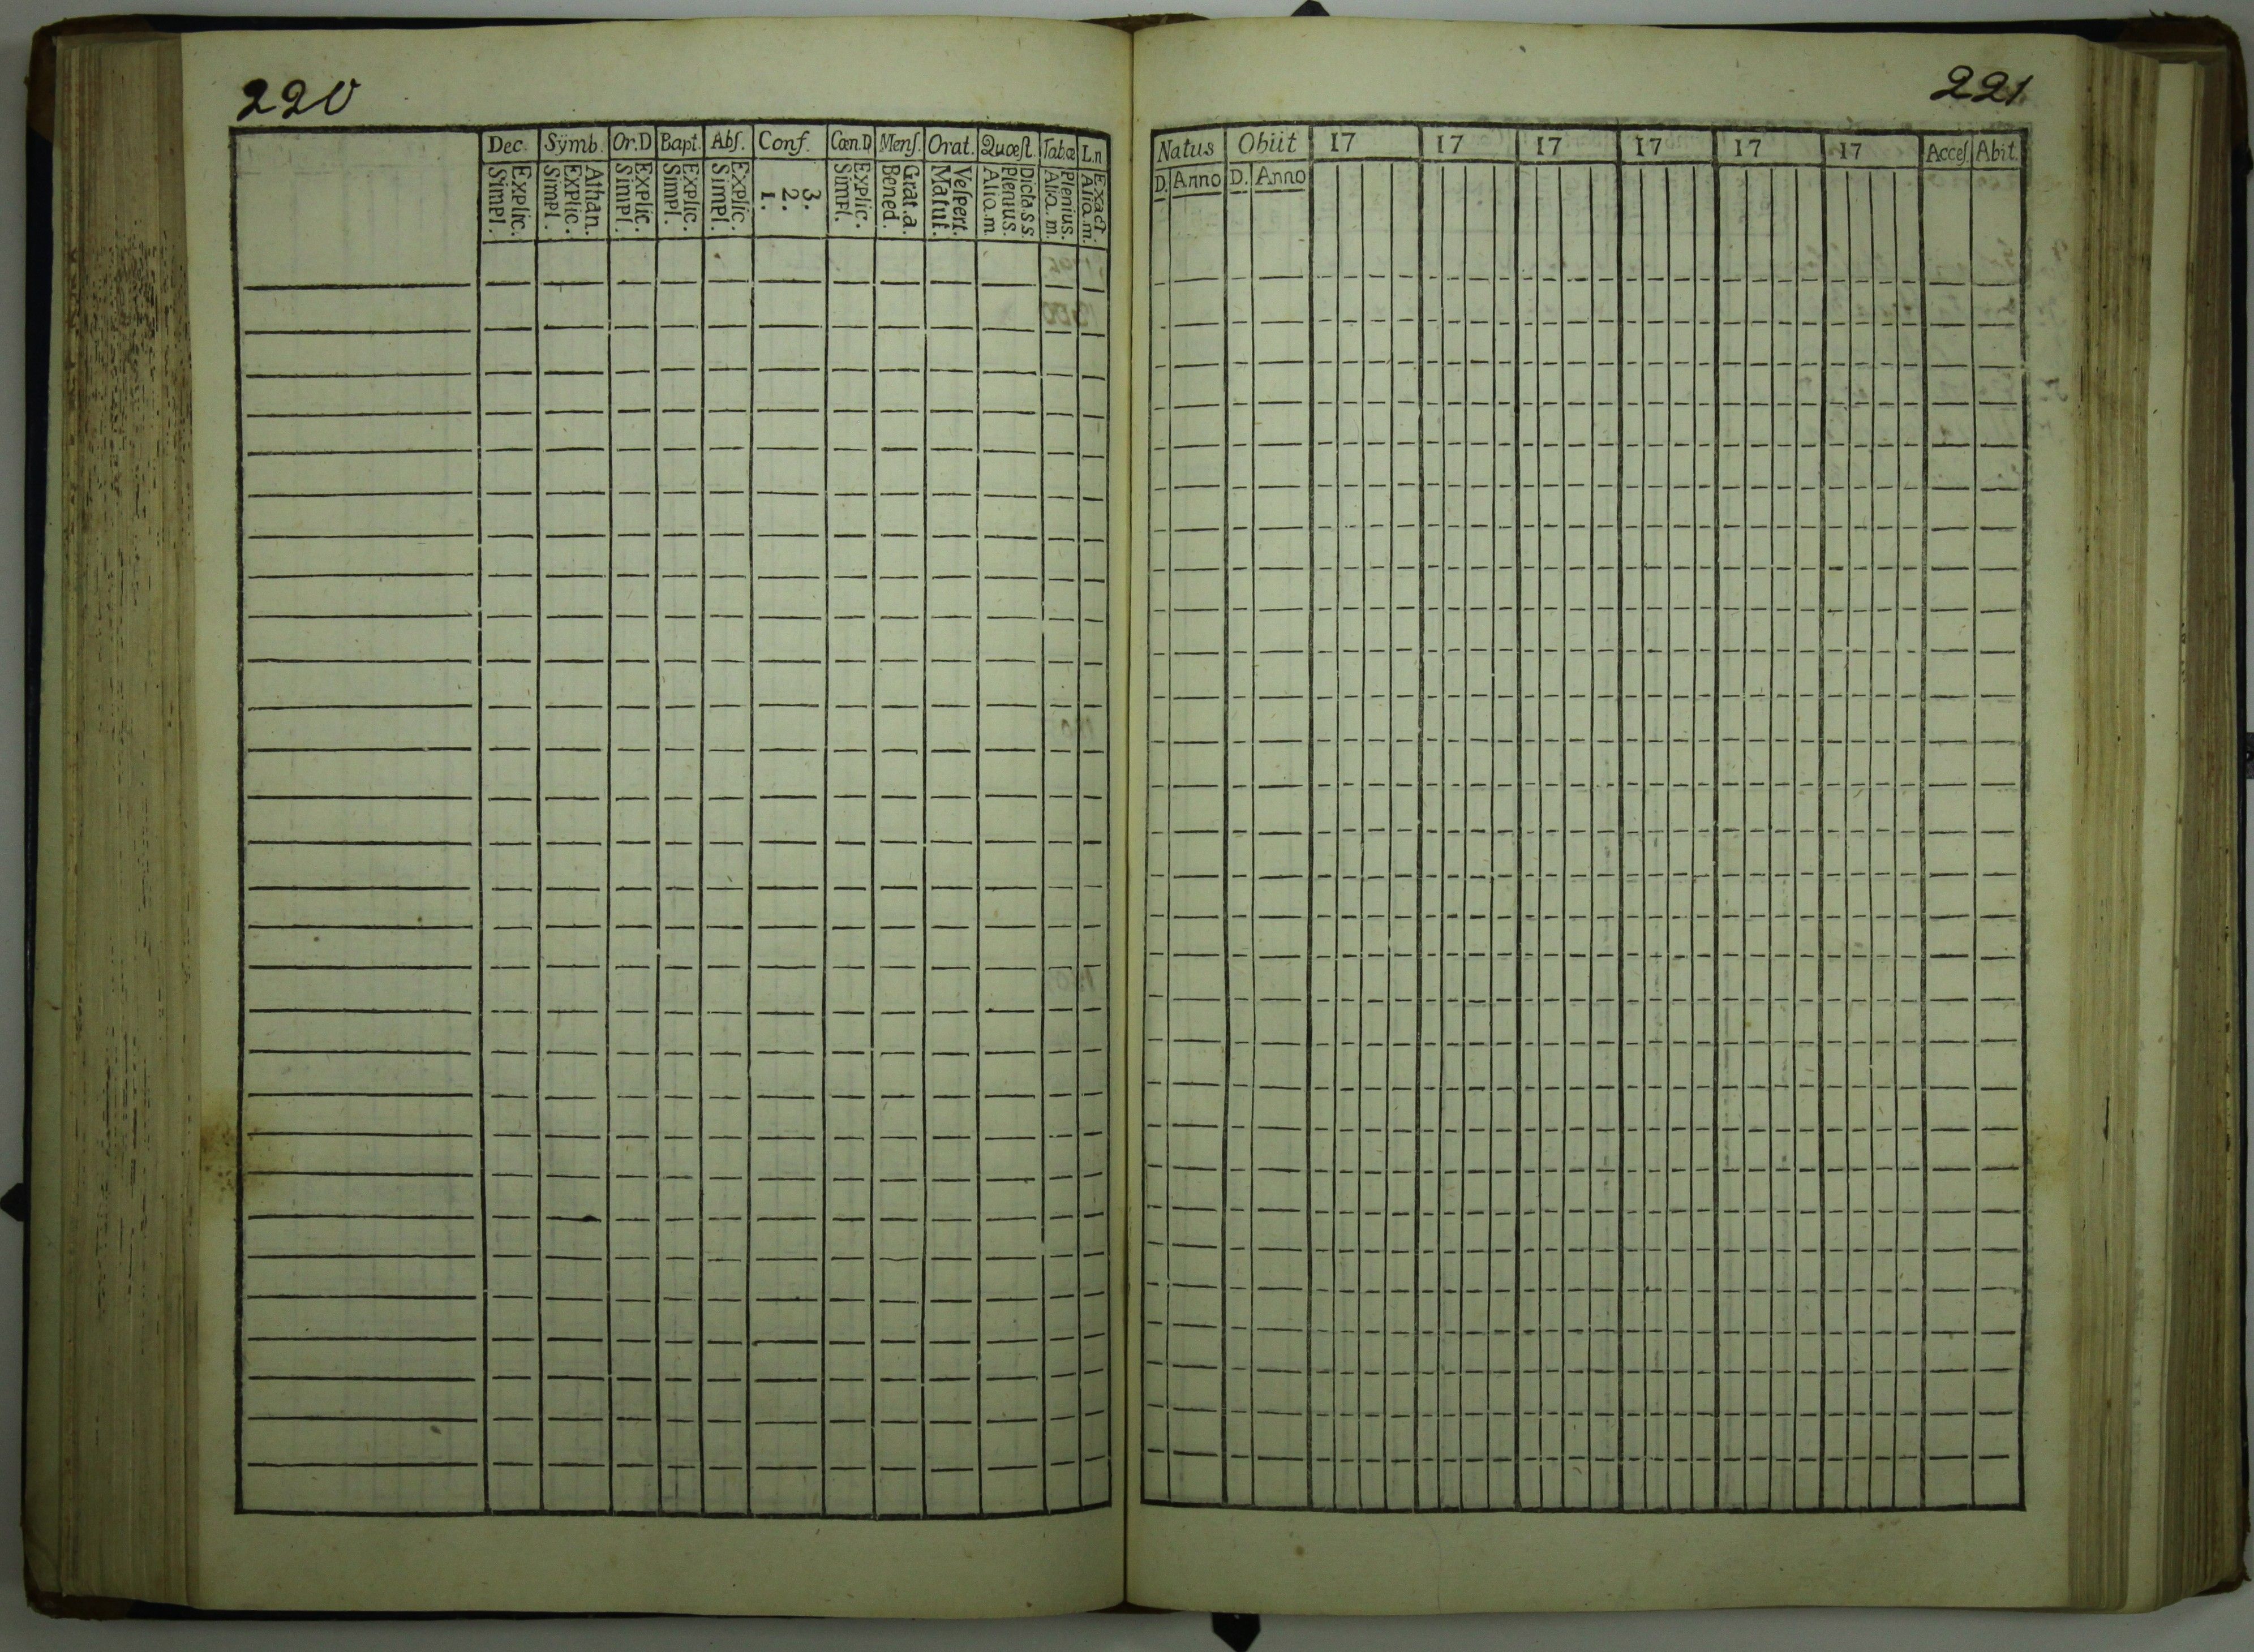 220
Dec. Sÿmb. Or.D Bapt. Abſ. Conf. Cœn.D Menſ. Orat. Quœſt. Tab.œ L.n
Simpl. Explic. Simpl. Explic. Athan. Simpl. Explic. Simpl. Explic. Simpl. Explic. 1. 2. 3. Simpl. Explic. Bened. Grat.a. Matut. Veſpert. Alio.m Plenius. Dicta.s.s Alia.m. Plenius. Alia.m. Exact.
221
Natus Obiit 17 17 17 17 17 17 Acceſ Abit.
D. Anno D. Anno